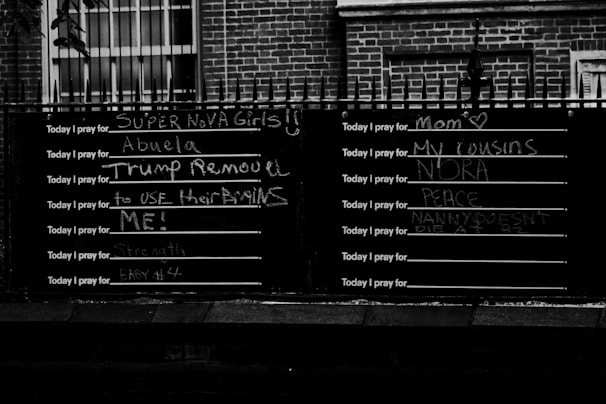 Today I pray for SUPER NOVA Girls!!
Today I pray for Abuela
Today I pray for Trump Removed
Today I pray for to USE their BRAINS
Today I pray for ME!
Today I pray for Strength
Today I pray for BABY #4
Today I pray for Mom
Today I pray for My cousins
Today I pray for NORA
Today I pray for PEACE
Today I pray for NANNY DOESN'T DIE AT 92
Today I pray for
Today I pray for